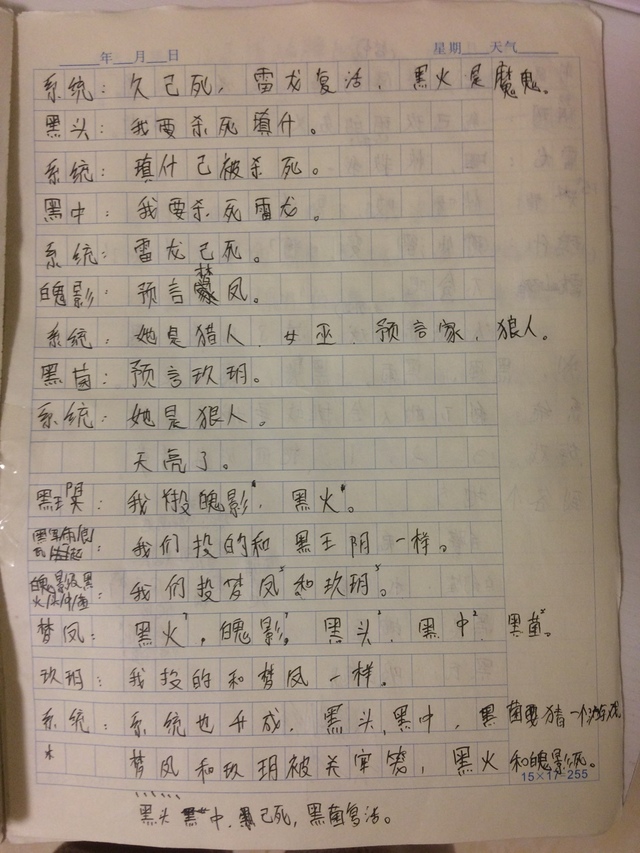 年 月 日 星期 天气
系统：久己死，雷龙复活，黑火是魔鬼。
黑头：我要杀死填什。
系统：填什己被杀死。
黑中：我要杀死雷龙。
系统：雷龙己死。
魄影：预言梦凤。
系统：她是猎人、女巫、预言家、狼人。
黑菌：预言玖玥。
系统：她是狼人。
天亮了。
我投魄影，黑火。
我们投的和黑王阴一样。
我们投梦凤和玖玥。
梦凤：黑火，魄影，黑头，黑中，黑菌。
玖玥：我投的和梦凤一样。
系统：系统也升成，黑头，黑中，黑菌要猜一个
梦凤和玖玥被关牢笼，黑火和魄影死。
15×17=255
黑头 黑中，己死，黑菌复活。